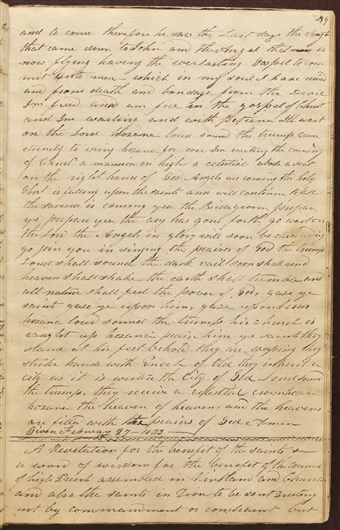 and to come therefore he saw the last days the Angel
that came down to John and the Angel that is
now flying having the everlasting Gospel to com
mit unto men which in my soul I have
and from death and bondage from the Devil
I'm freed and am free in the gospel of Christ
and I'm waiting and with patience I'll wait
on the Lord Hosanna loud sound the trump cause
eternity to ring hosanna for ever I'm waiting the coming
of Christ a mansion on high a celestial abode a seat
on the right hand of God Angels are coming the holy
Ghost is falling upon the saints and will continue to fall
the saviour is coming yea the Bridegroom prepar
ye prepare yea the cry has gone forth go wait on
the Lord the Angels in glory will soon be
go join you in singing the praises of God the trump
loud shall sound the dark vail soon shall rend
heaven shall shake the earth shall tremble and
all nature shall feel the power of God gaze ye
saints gaze ye upon him gaze upon Jesus
hosanna loud sound the trump his church is
caught up hosanna praise him ye saints they
stand at his feet behold they are weeping they
strike hands with Enoch of Old they inherit a
city as it is written the City of God Loud sound
the trump they receive a celestial crown hosanna
hosanna the heaven of heavens and the heavens
are filled with the praises of God Amen
Given February 27 1833
A Revelation for the benefit of the saints &c
a word of wisdom for the benefit of the Council
of high Priest assembled in Kirtland and Church
and also the saints in Zion to be sent greeting
not by commandment or constraint but